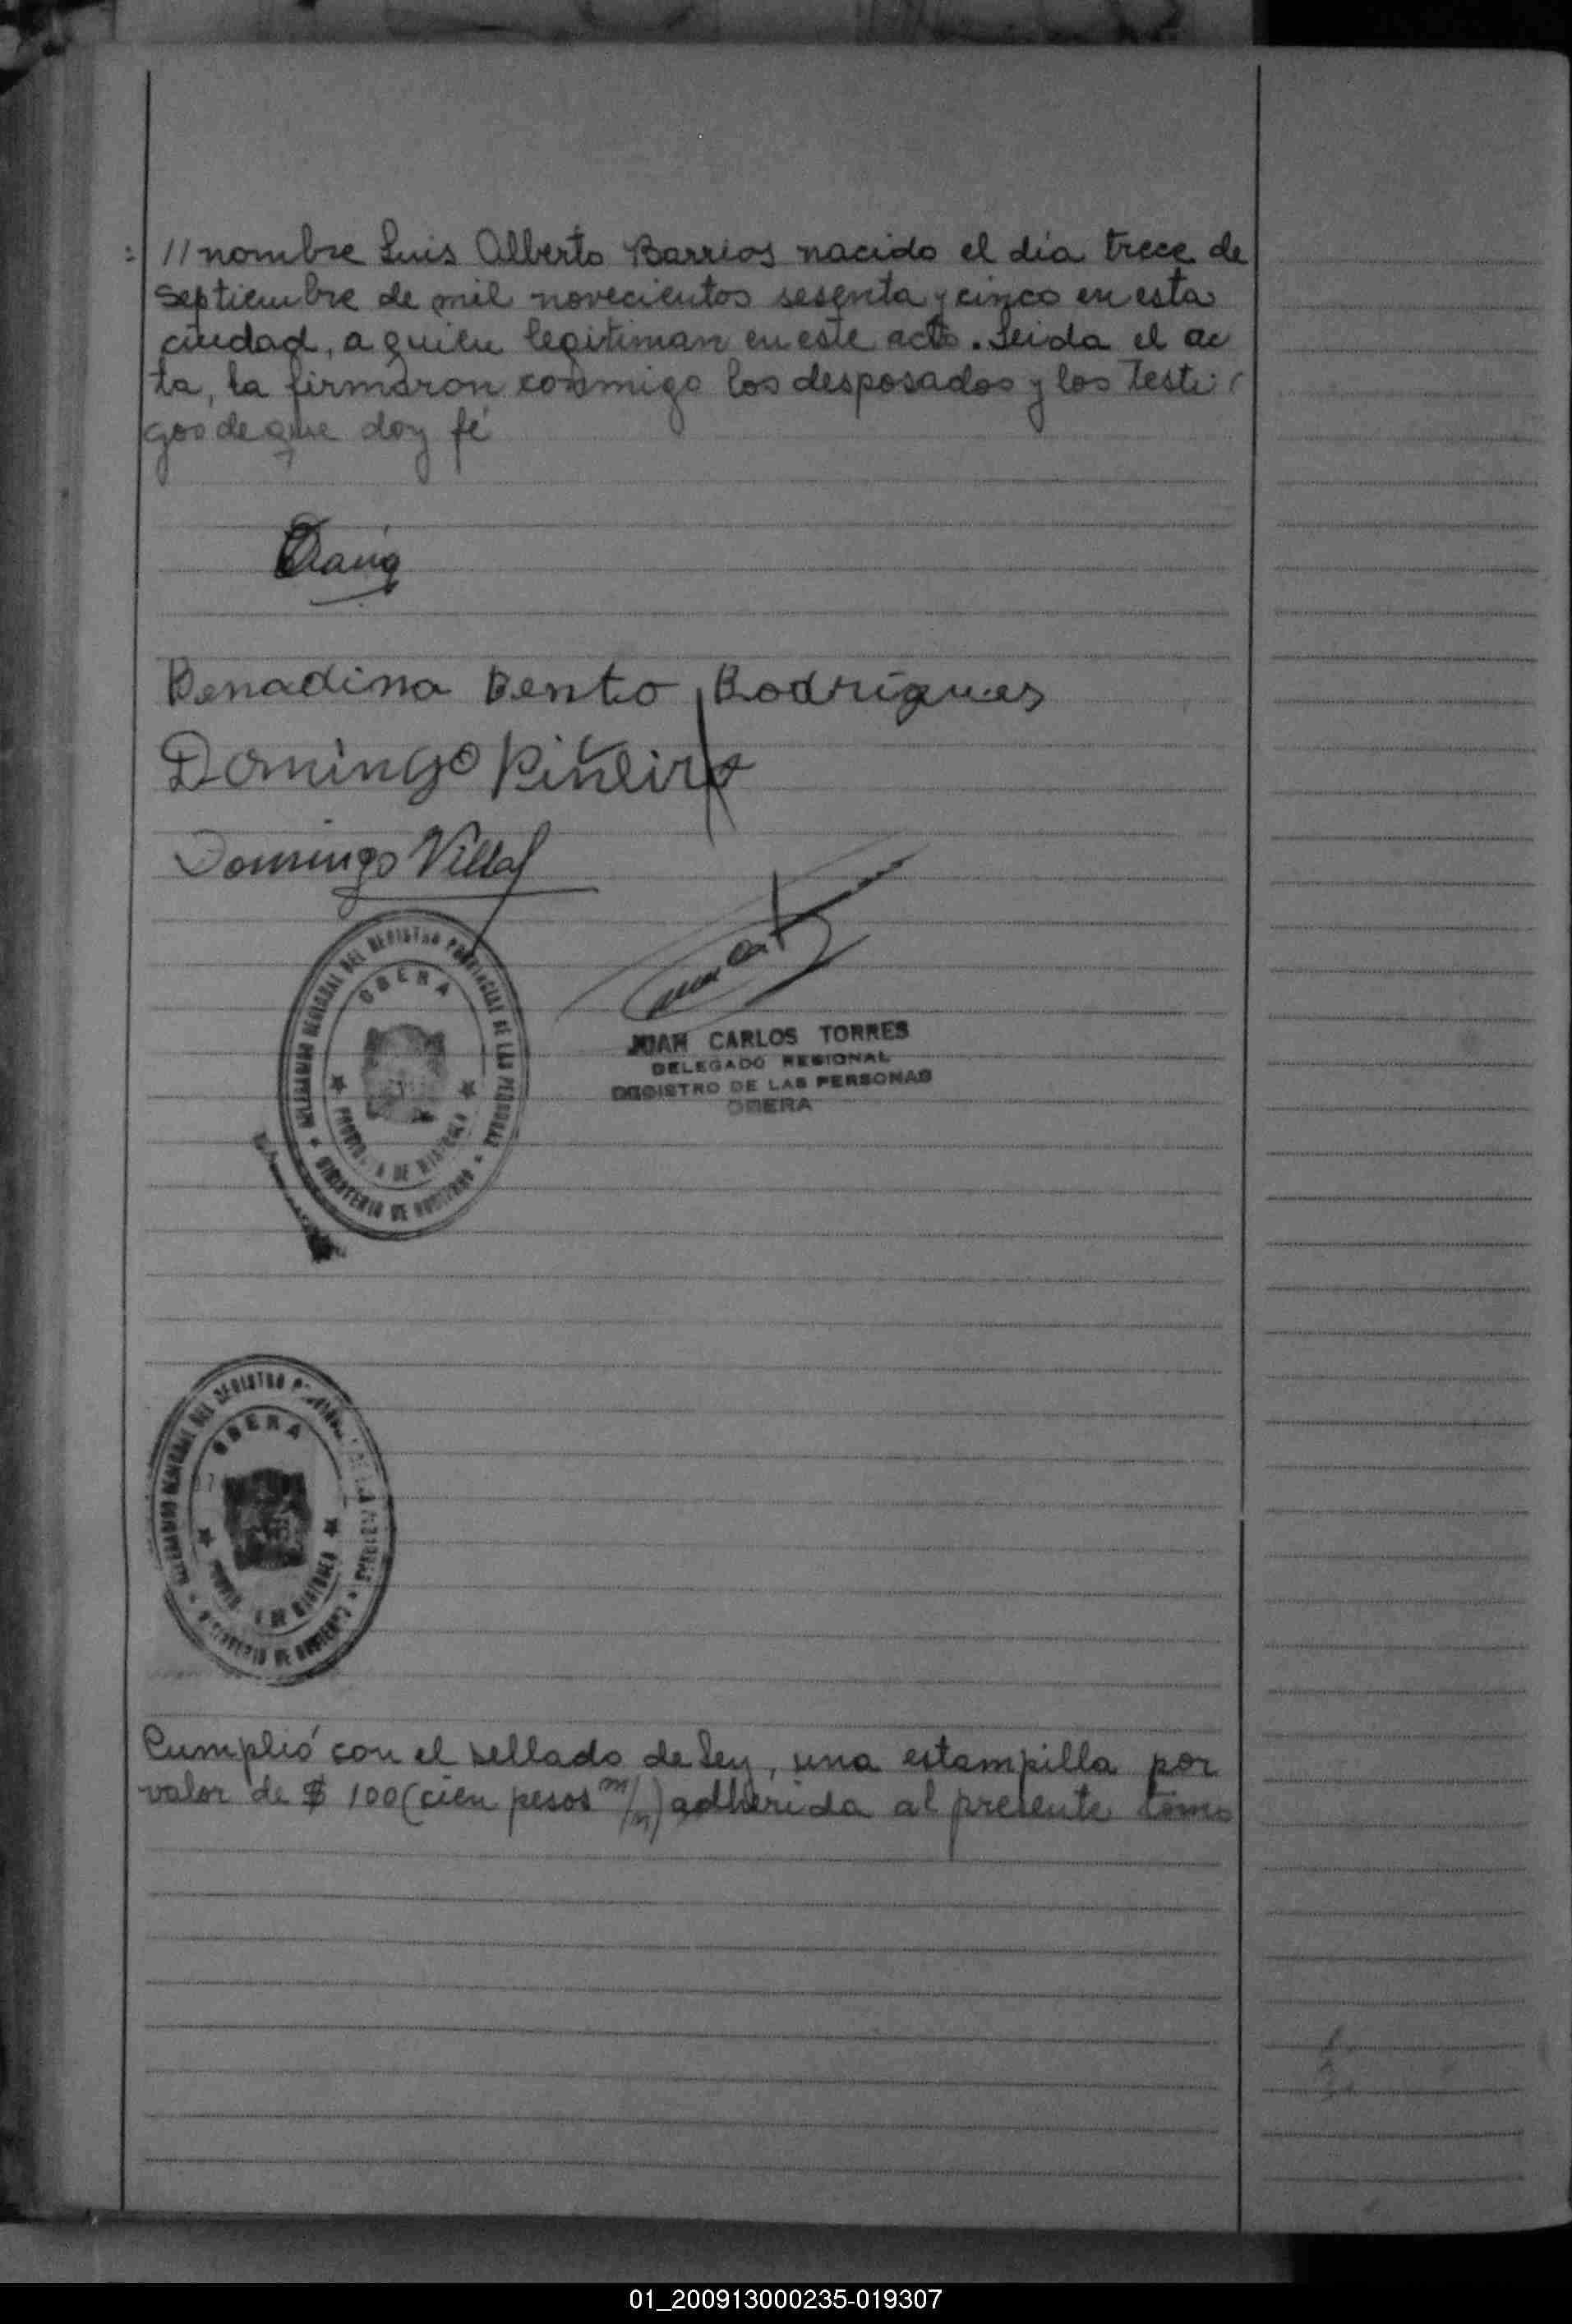 // nombre Luis Alberto Barrios nacido el día trece de
septiembre de mil novecientos sesenta y cinco en esta
ciudad, a quien legitiman en este acto. Leida el ac
ta, la firmaron conmigo los desposados y los testi
gos de que doy fé
Benadina Bento Rodrigues
Domingo Piñeiro
Domingo Villal
DELEGACION REGIONAL DEL REGISTRO PROVINCIAL DE LAS PERSONAS
OBERA
PROVINCIA DE MISIONES
MINISTERIO DE GOBIERNO
JUAN CARLOS TORRES
DELEGADO REGIONAL
REGISTRO DE LAS PERSONAS
OBERA
DELEGACION REGIONAL DEL REGISTRO
OBERA
MINISTERIO DE GOBIERNO
Cumplió con el sellado de Ley, una estampilla por
valor de $ 100 (cien pesos m/n) adherida al presente tomo
01_200913000235-019307